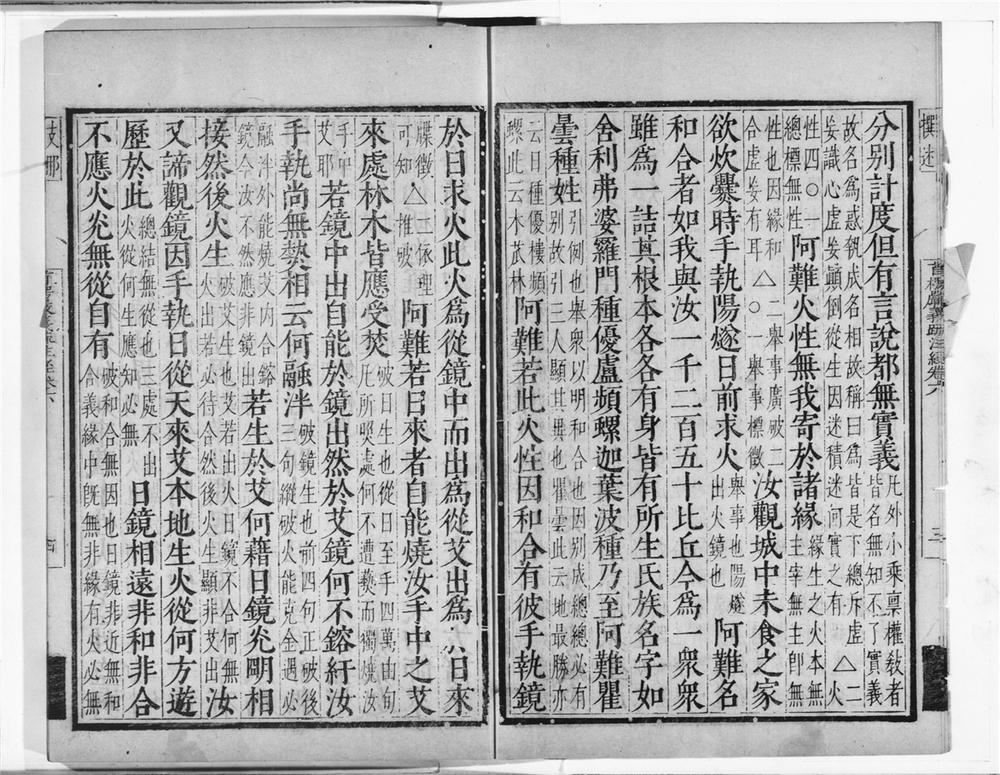 撰述
首楞嚴義疏注經卷六
三
分別計度但有言說都無實義凡外小乘禀權敎者皆名無知不了實義
故名爲惑執成名相故稱曰爲皆是下總斥虛妄識心虛妄顛倒從生因迷積迷何實之有△二火
性四○一總標無性阿難火性無我寄於諸緣緣生之火本無主宰無主即無
性也因緣和合虛妄有耳△二舉事廣破二○一舉事標徵汝觀城中未食之家
欲炊爨時手執陽燧日前求火舉事也陽燧出火鏡也阿難名
和合者如我與汝一千二百五十比丘今爲一衆衆
雖爲一詰其根本各各有身皆有所生氏族名字如
舍利弗婆羅門種優盧頻螺迦葉波種乃至阿難瞿
曇種姓引例也舉衆以明和合也因別成總總必有別故引三人顯其異也瞿曇此云地最勝亦
云日種優樓頻螺此云木苽林阿難若此火性因和合有彼手執鏡
於日求火此火爲從鏡中而出爲從艾出爲於日來
牒徵可知△二依理推破阿難若日來者自能燒汝手中之艾
來處林木皆應受焚破日生也從日至手四萬由旬凢所處何不遭爇而獨燒汝
手中艾耶若鏡中出自能於鏡出然於艾鏡何不鎔紆汝
手執尚無熱相云何融泮破鏡生也前四句正破後三句縱破火能克金過必
融泮外能燒艾内合鎔鏡今汝不然應非鏡出若生於艾何藉日鏡光明相
接然後火生破艾生也艾若出火日鏡不合何無火出若必待合然後火生顯非艾出汝
又諦觀鏡因手執日從天來艾本地生火從何方遊
歷於此總結無從也三處不出火從何生應知必無日鏡相遠非和非合
不應火光無從自有破和合無因也日鏡非近無和合義緣中旣無非緣有火必無
四